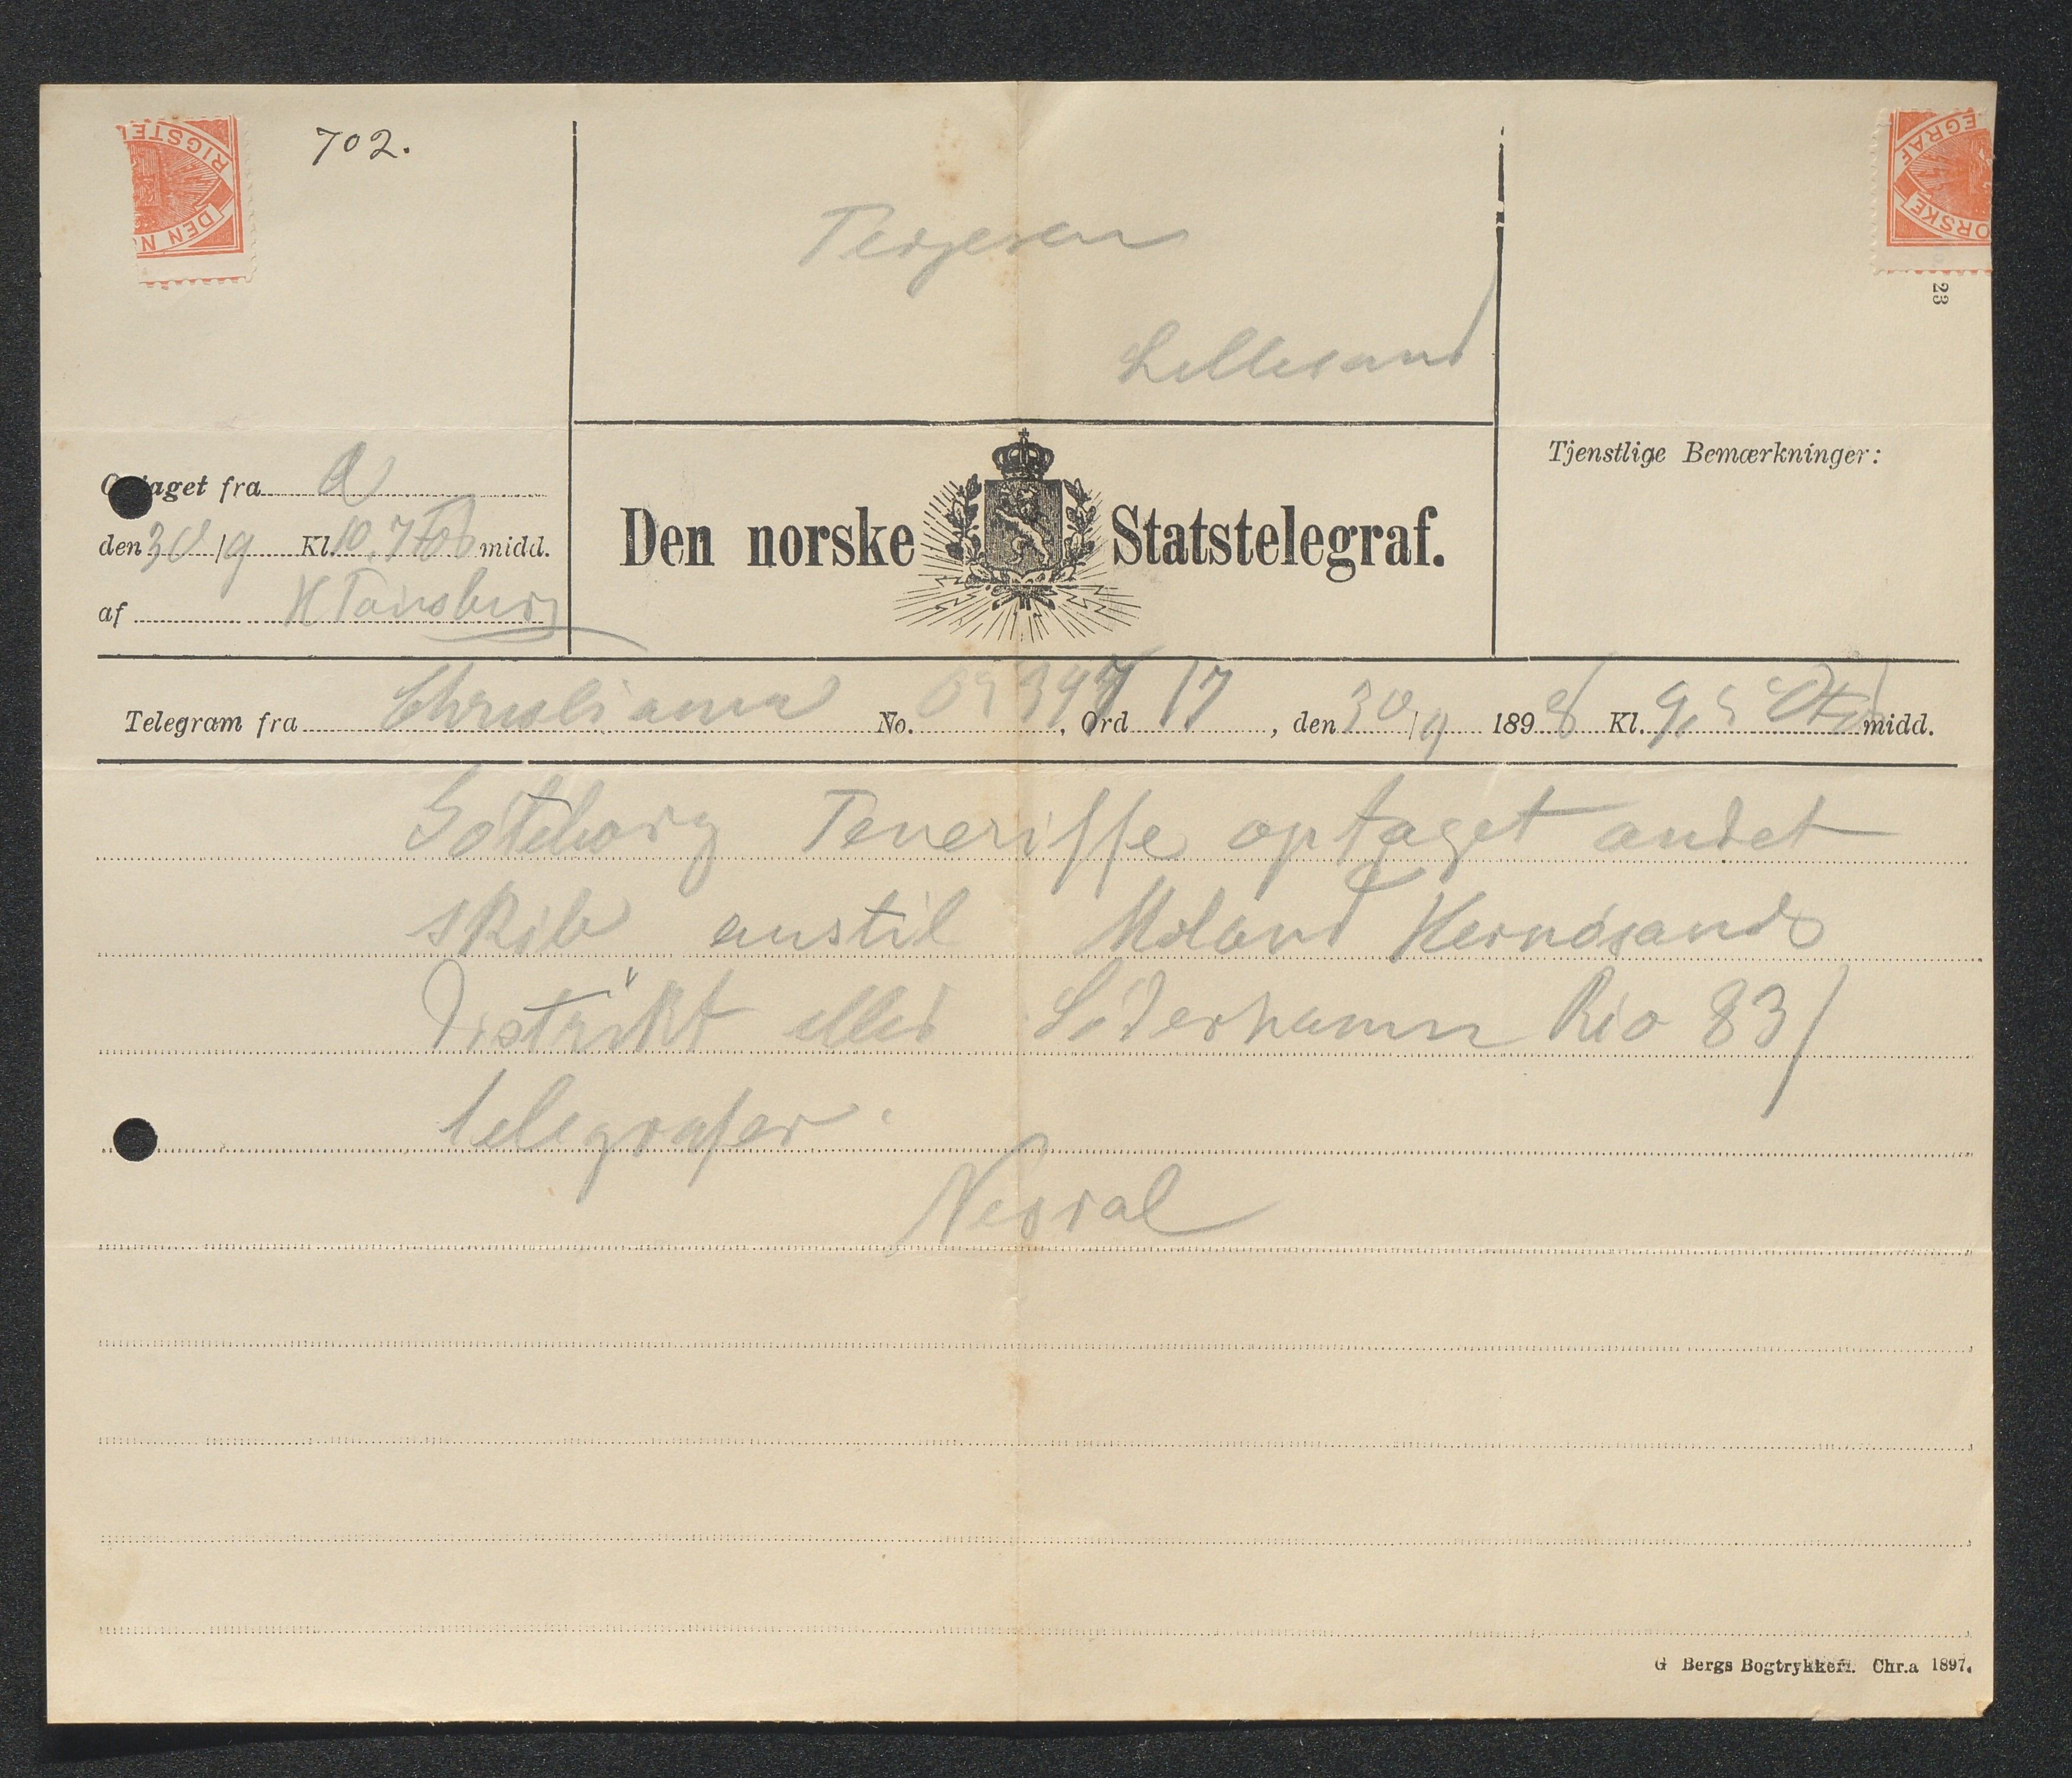 702.
Terjesen
Lillesand
23
Optaget fra A
den 30/9 Kl. 10,7 For midd.
af H Tønsberg
Den norske Statstelegraf.
Tjenstlige Bemærkninger:
Telegram fra Christiania No. Ord 17, den 30/9 1898 Kl. 9,5 midd.
Göteborg Teneriffe optaget andet
skib anstil Moland Hernösands
Distrikt eller Söderhamn Rio 83/
telegrafer.
Nesdal
G Bergs Bogtrykkeri. Chr.a 1897.